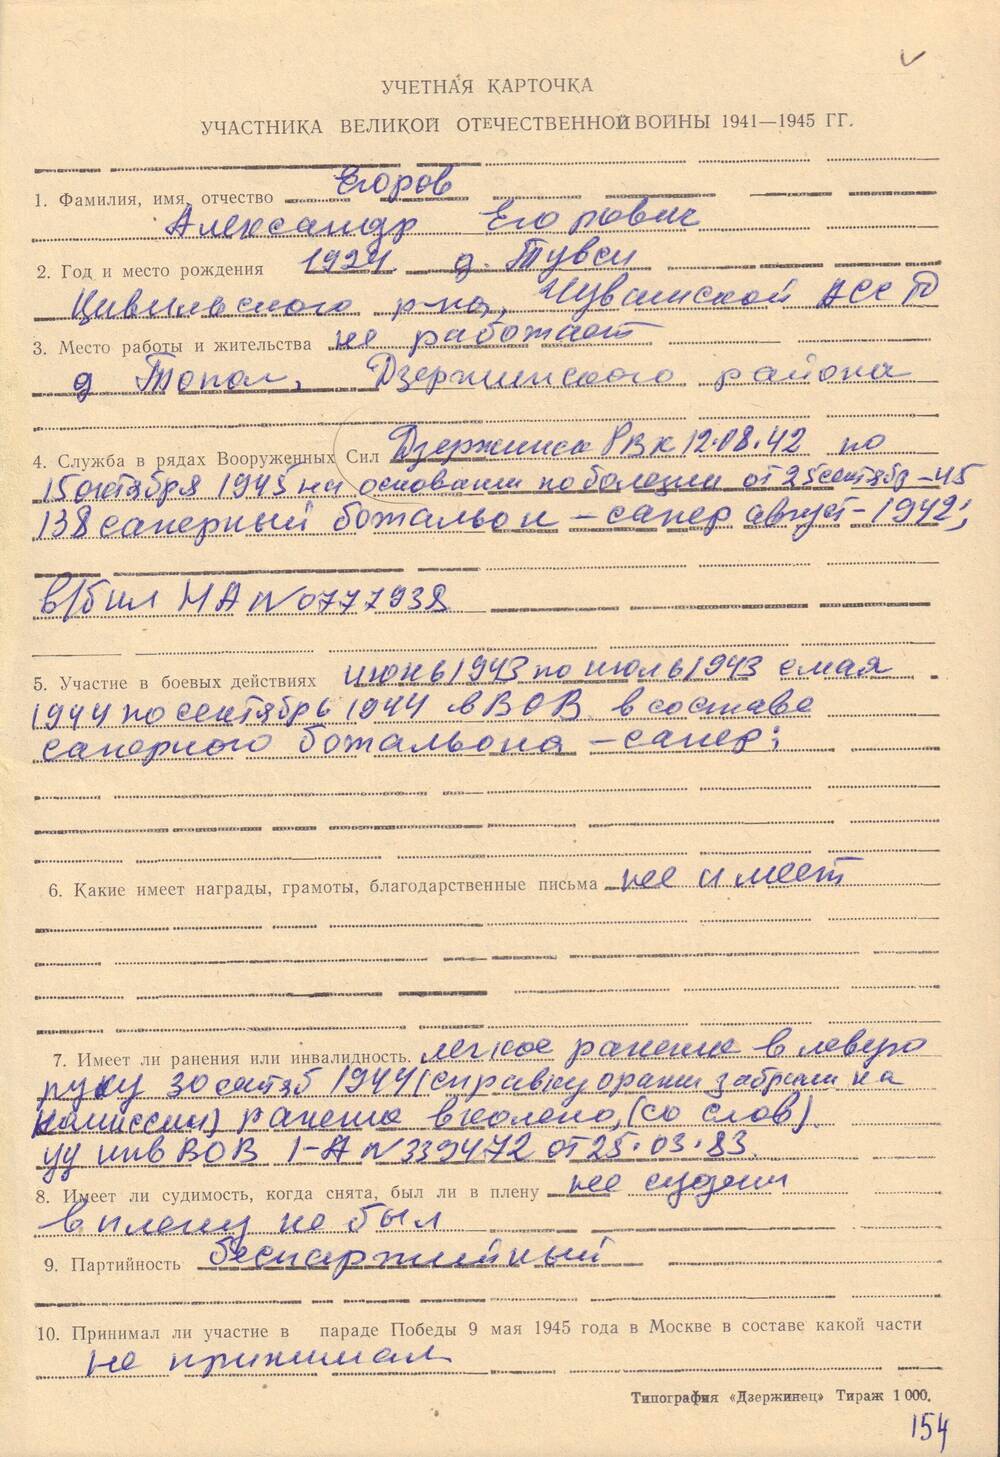 УЧЕТНАЯ КАРТОЧКА
УЧАСТНИКА ВЕЛИКОЙ ОТЕЧЕСТВЕННОЙ ВОЙНЫ 1941—1945 ГГ.
1. Фамилия, имя, отчество Егоров
Александр Егорович
2. Год и место рождения 1924 д. Тувси
Цивильского р-на, Чувашской АССР
3. Место работы и жительства не работает
д Топол, Дзержинского района
4. Служба в рядах Вооруженных Сил Дзержинск РВК 12.08.42 по
15 октября 1945 на основании по болезни от 25 сентябр-45
138 саперныйботальон - сапер август-1942;
в/бил НА №0777938
5. Участие в боевых действиях июнь 1943 по июль 1943 с мая
1944 по сентябрь 1944 в ВОВ в составе
саперного ботальона - сапер;
6. Какие имеет награды, грамоты, благодарственные письма не имеет
7. Имеет ли ранения или инвалидность. легкое ранение в левую
руку 30 сентяб 1944 (справку о ранен забрали на
комиссии) ранение в колено, (со слов).
уд инв ВОВ I-А №339472 от 25.03.83.
8. Имеет ли судимость, когда снята, был ли в плену не судим
в плену не был
9. Партийность беспартийный
10. Принимал ли участие в параде Победы 9 мая 1945 года в Москве в составе какой части
не принимал
Типография «Дзержинец» Тираж 1 000.
154